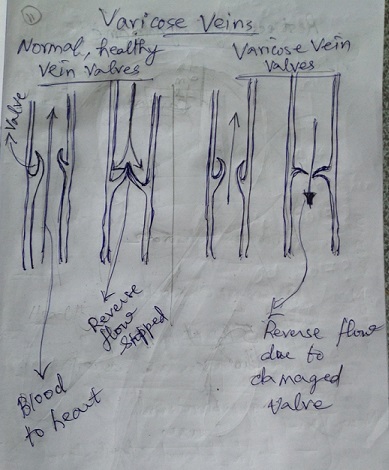 11
Varicose Veins
Normal, healthy
Vein Valves
Varicose Vein
Valves
Valve
Reverse
flow
stopped
Blood
to heart
Reverse flow
due to
damaged
Valve